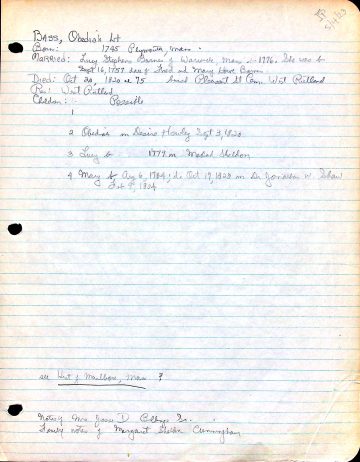 BASS, Obediah Lot
Born: 1745 Plymouth, Mass.
MARRIED: Lucy Stephens Barnes of Warwick, Mass in 1776. She was b
Sept 16, 1757 dau of and Mary Barnes
Died: Oct 20, 1820 ae 75 buried Pleasant St Cem West Rutland
Res: West Rutland
Children: Possible
1
2 Obediah m Desire Hawley Sept 3, 1820
3 Lucy b 1779 m Sheldon
4 Mary b Aug 6, 1784; d. Oct 19, 1828 m Dr Jonathan W. Shaw
Feb 9, 1824
see Hist of Marlboro, Mass ?
Notes of Mrs D Jr.
Family notes of Margaret Sheldon Cunningham